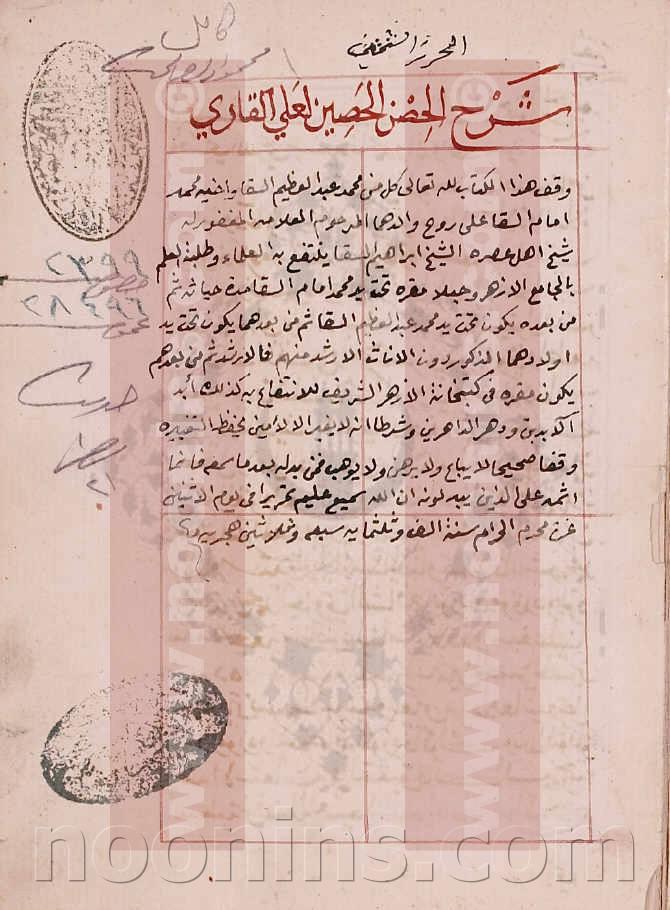 كامل
الحرز الثمين
شرح الحصن الحصين لعلي القاري
وقف هذا الكتاب لله تعالى كل من محمد عبد العظيم السقا واخيه محمد
امام السقا على روح والدهما المرحوم العلامه المغفور له
شيخ اهل عصره الشيخ ابراهيم السقا ينتفع به العلماء وطلبة العلم
بالجامع الازهر وجعلا مقره تحت يد محمد امام السقا مدة حياته ثم
من بعده يكون تحت يد محمد عبد العظيم السقا ثم من بعدهما يكون تحت يد
اولادهما الذكور دون الاناث الارشد منهم فالارشد ثم من بعدهم
يكون مقره في كتبخانة الازهر الشريف للانتفاع به كذلك أبد
الآبدين ودهر الداهرين وشرطا انه لا يغير الا لامين يحفظه
وقفا صحيحا لا يباع ولا يرهن ولا يوهب فمن بدله بعد ما سمعه فانما
اثمه على الذين يبدلونه ان الله سميع عليم تحريرا في يوم الاثنين
غرة محرم الحرام سنة الف وثلثمايه سبعه وثلاثين هجريه
٢٣٩٩
خصوص
٢٨٤٩٦
عموم
حديث
www.noonins.com
noonins.com